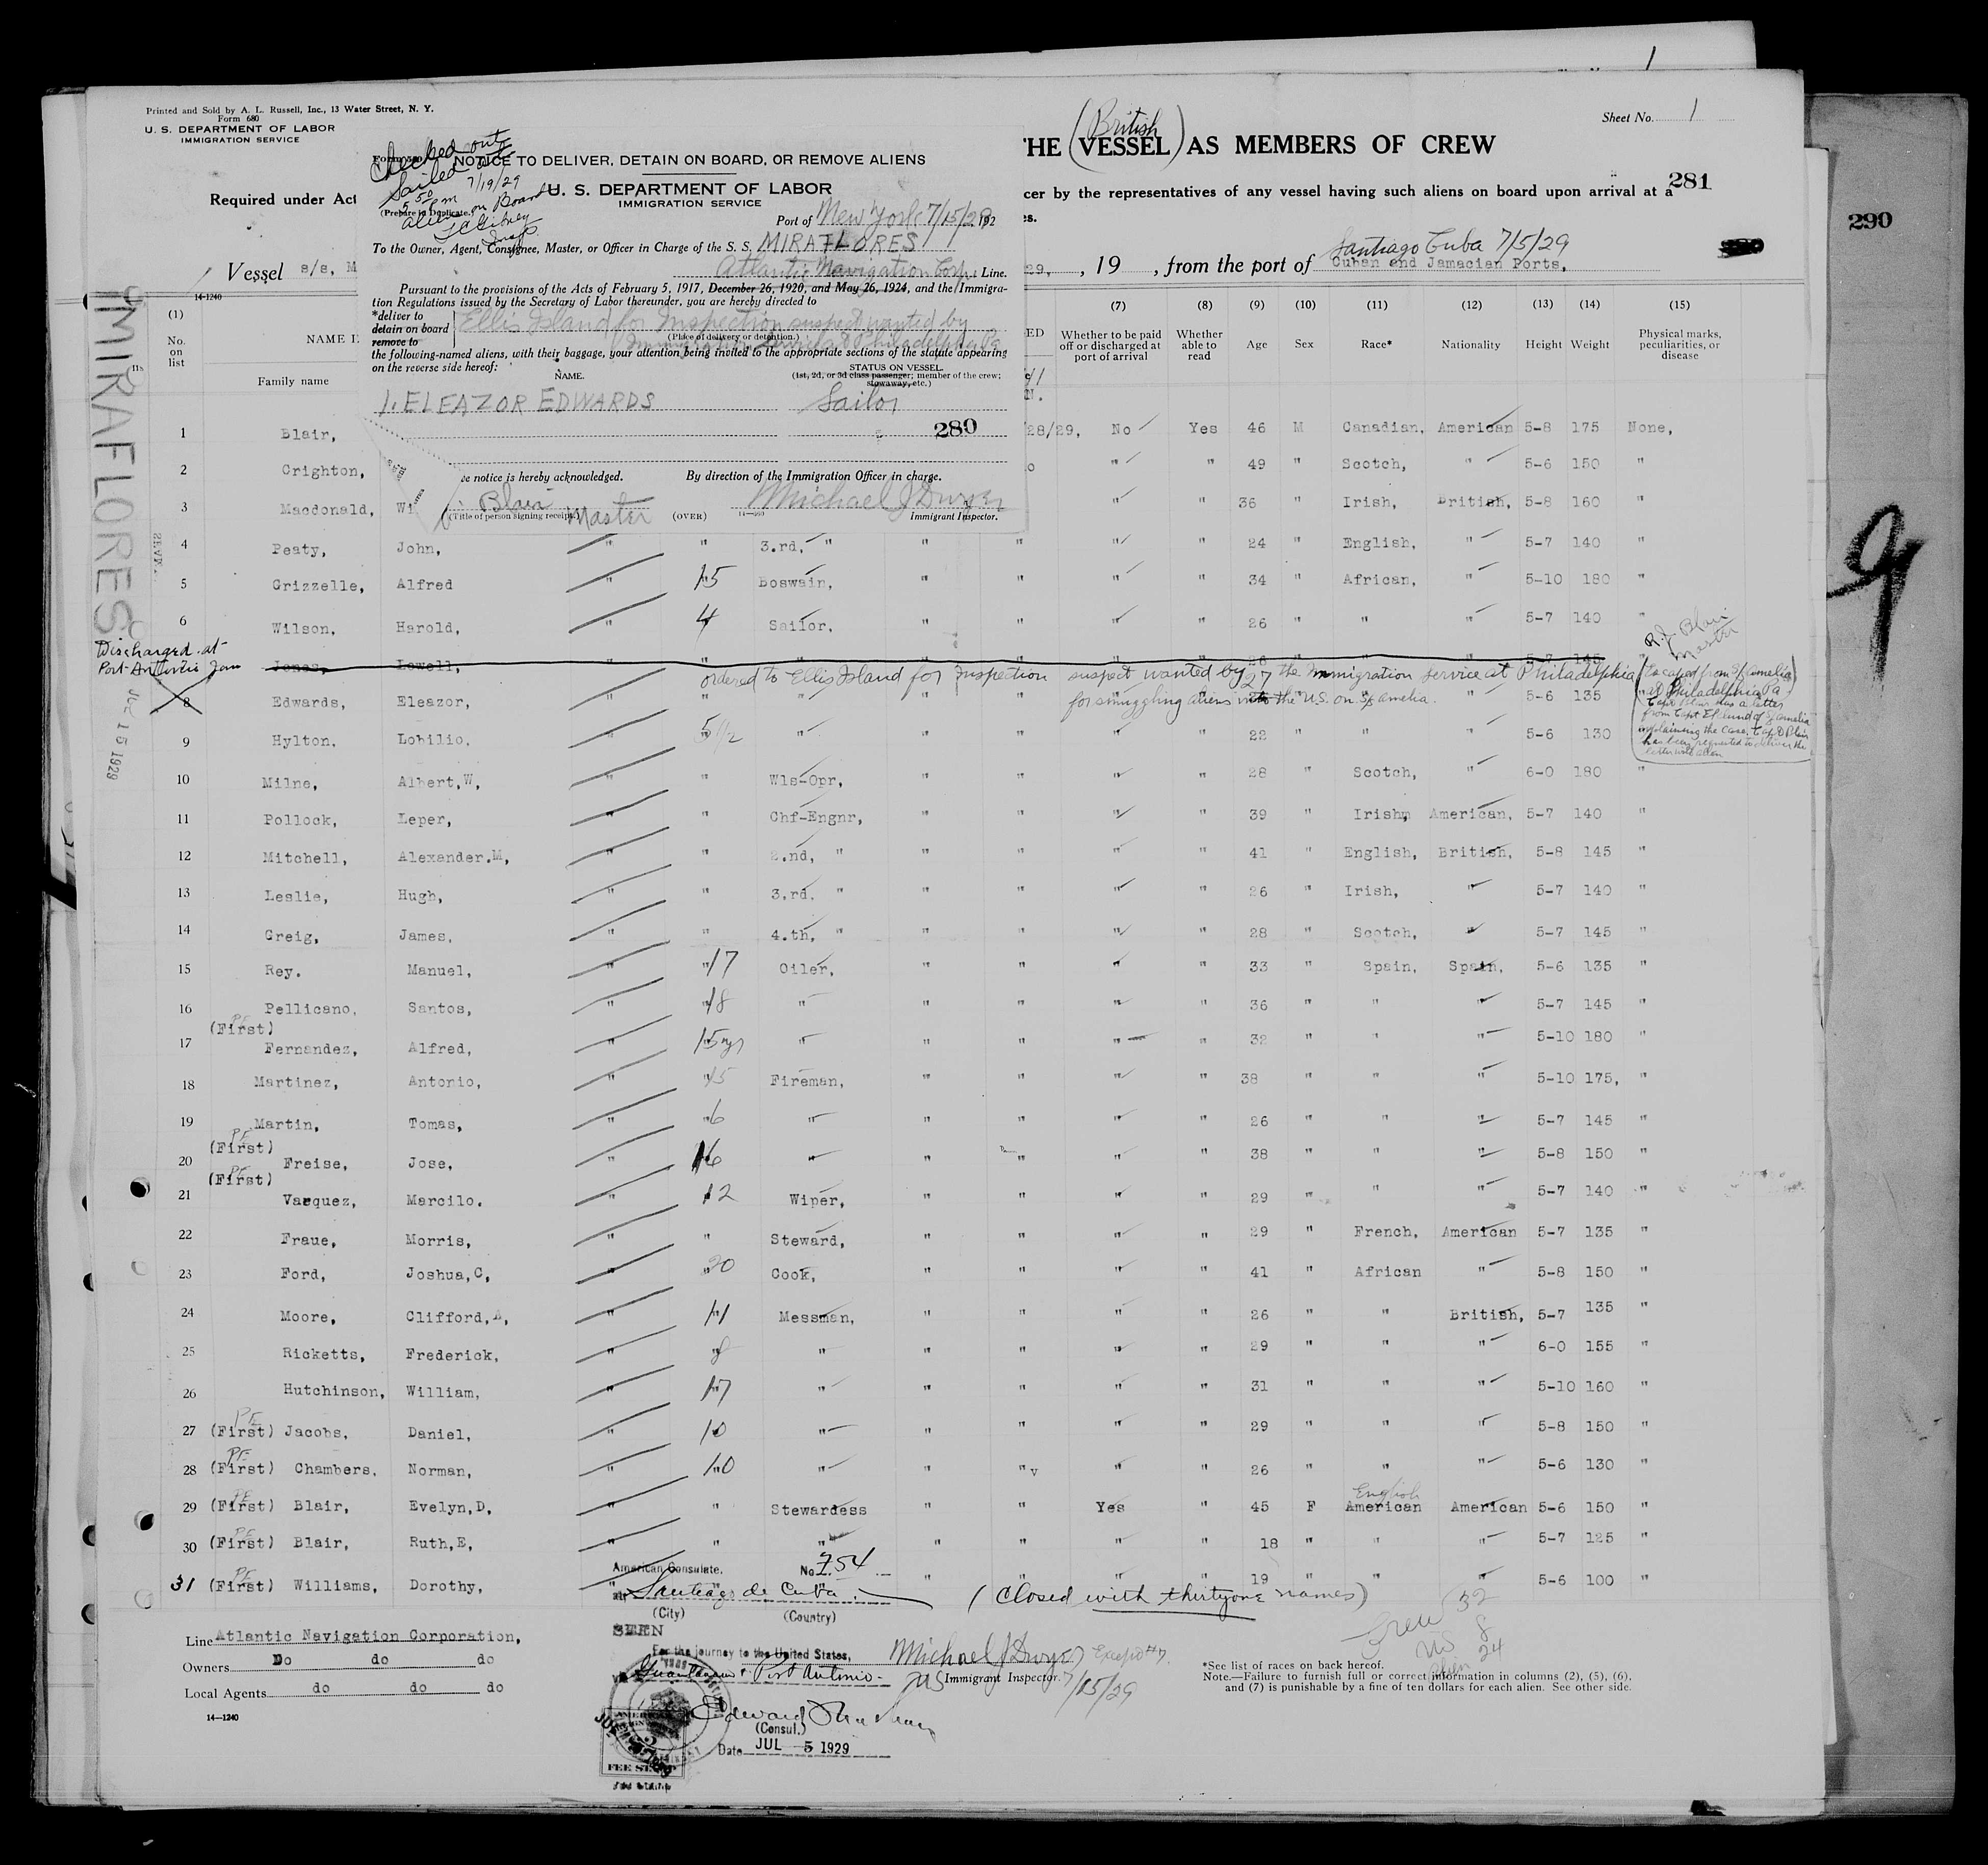 Printed and Sold by A. L. Russell, Inc., 13 Water Street, N. Y.
Form 680
U. S. DEPARTMENT OF LABOR
IMMIGRATION SERVICE
Required under Act
Vessel s/s, M
14-1240
(1)
No. on list
NAME I
Family name
MIRAFLORES
JUL 15 1929
Checked out
Sailed at
5 50 pm 7/19/29
alien on Board
Insp
(Prepare in Duplicate.)
NOTICE TO DELIVER, DETAIN ON BOARD, OR REMOVE ALIENS
U. S. DEPARTMENT OF LABOR
IMMIGRATION SERVICE
Port of New York 7/15/29, 192
To the Owner, Agent, Consignee, Master, or Officer in Charge of the S. S. MIRAFLORES
Atlantic Navigation Corp. Line.
Pursuant to the provisions of the Acts of February 5, 1917, December 26, 1920, and May 26, 1924, and the Immigra-
tion Regulations issued by the Secretary of Labor thereunder, you are hereby directed to
*deliver to
detain on board
remove to
Ellis Island for Inspection suspect wanted by
(Place of delivery or detention.)
Immigration Service at Philadelphia Pa
the following-named aliens, with their baggage, your attention being invited to the appropriate sections of the statute appearing
on the reverse side hereof:
NAME.
STATUS ON VESSEL.
(1st, 2d, or 3d class passenger; member of the crew; stowaway, etc.)
1. ELEAZOR EDWARDS Sailor
280
e notice is hereby acknowledged.
By direction of the Immigration Officer in charge.
Blair Michael J Dwyer
(Title of person signing receipt.) Master (OVER) Immigrant Inspector.
THE (VESSEL) AS MEMBERS OF CREW
(British)
Sheet No. 1
cer by the representatives of any vessel having such aliens on board upon arrival at a
281
290
29, , 19 , from the port of Cuban and Jamacian Ports,
Santiago Cuba 7/5/29
(7) (8) (9) (10) (11) (12) (13) (14) (15)
Whether to be paid off or discharged at port of arrival
Whether able to read
Age Sex Race* Nationality Height Weight
Physical marks, peculiarities, or disease
1 Blair, 28/29, No Yes 46 M Canadian, American 5-8 175 None,
2 Crighton, " " 49 " Scotch, " 5-6 150 "
3 Macdonald, Wi " " 36 " Irish, British, 5-8 160 "
4 Peaty, John, " " 3.rd, " " " " " 24 " English, " 5-7 140 "
5 Grizzelle, Alfred " 15 Boswain, " " " " 34 " African, " 5-10 180 "
6 Wilson, Harold, " 4 Sailor, " " " " 26 " " " 5-7 140 "
Discharged at
Port Antonio Jam
Jones, Lowell, " " " " " " 26 " " " 5-7 145
ordered to Ellis Island for Inspection suspect wanted by the Immigration Service at Philadelphia
for smuggling aliens into the U.S. on S/S Amelia.
8 Edwards, Eleazor, " " " " 27 5-6 135 "
R.J. Blair
Master
Escaped from S/S Amelia
at Philadelphia, Pa
Capt Blair has a letter
from Capt of S/S Amelia
explaining the case. Capt Blair
has been requested to deliver the
letter with alien
9 Hylton, Lohilio, " 5 1/2 " " " " " 22 " " " 5-6 130
10 Milne, Albert,W, " " Wls-Opr, " " " " 28 " Scotch, " 6-0 180 "
11 Pollock, Leper, " " Chf-Engnr, " " " " 39 " Irish, American, 5-7 140 "
12 Mitchell, Alexander.M, " " 2.nd, " " " " " 41 " English, British, 5-8 145 "
13 Leslie, Hugh, " " 3.rd, " " " " " 26 " Irish, " 5-7 140 "
14 Greig, James, " " 4.th, " " " " " 28 " Scotch, " 5-7 145 "
15 Rey. Manuel, " 17 Oiler, " " " " 33 " Spain, Spain, 5-6 135 "
16 Pellicano, Santos, " 18 " " " " " 36 " " " 5-7 145 "
17 (First) Fernandez, Alfred, " 15 yrs " " " " " 32 " " " 5-10 180 "
18 Martinez, Antonio, " 15 Fireman, " " " " 38 " " " 5-10 175, "
19 Martin, Tomas, " 6 " " " " " 26 " " " 5-7 145 "
20 (First) Freise, Jose, " 16 " " " " " 38 " " " 5-8 150 "
21 (First) Vasquez, Marcilo. " 12 Wiper, " " " " 29 " " " 5-7 140 "
22 Fraue, Morris, " " Steward, " " " " 29 " French, American 5-7 135 "
23 Ford, Joshua,C, " 20 Cook, " " " " 41 " African " 5-8 150 "
24 Moore, Clifford,A, " 11 Messman, " " " " 26 " " British, 5-7 135 "
25 Ricketts, Frederick, " 8 " " " " " 29 " " " 6-0 155 "
26 Hutchinson, William, " 17 " " " " " 31 " " " 5-10 160 "
27 (First) Jacobs, Daniel, " 10 " " " " " 29 " " " 5-8 150 "
28 (First) Chambers, Norman, " 10 " " " " " 26 " " " 5-6 130 "
29 (First) Blair, Evelyn,D, " " Stewardess " " Yes " 45 F American American 5-6 150 "
English
30 (First) Blair, Ruth,E, " " " " " " " 18 " " " 5-7 125 "
31 (First) Williams, Dorothy, " " " " " " 19 " " " 5-6 100 "
American Consulate. No 754
at Santiago de Cuba
(City) (Country)
(Closed with thirtyone names)
SEEN
For the journey to the United States,
via Guantanamo & Port Antonio
Edward
(Consul.)
Date JUL 5 1929
FEE STAMP
Michael J Dwyer Except #7.
Immigrant Inspector. 7/15/29
Crew 32
US 8
Alien 24
Line Atlantic Navigation Corporation,
Owners Do do do
Local Agents do do do
14—1240
*See list of races on back hereof.
Note.—Failure to furnish full or correct information in columns (2), (5), (6),
and (7) is punishable by a fine of ten dollars for each alien. See other side.